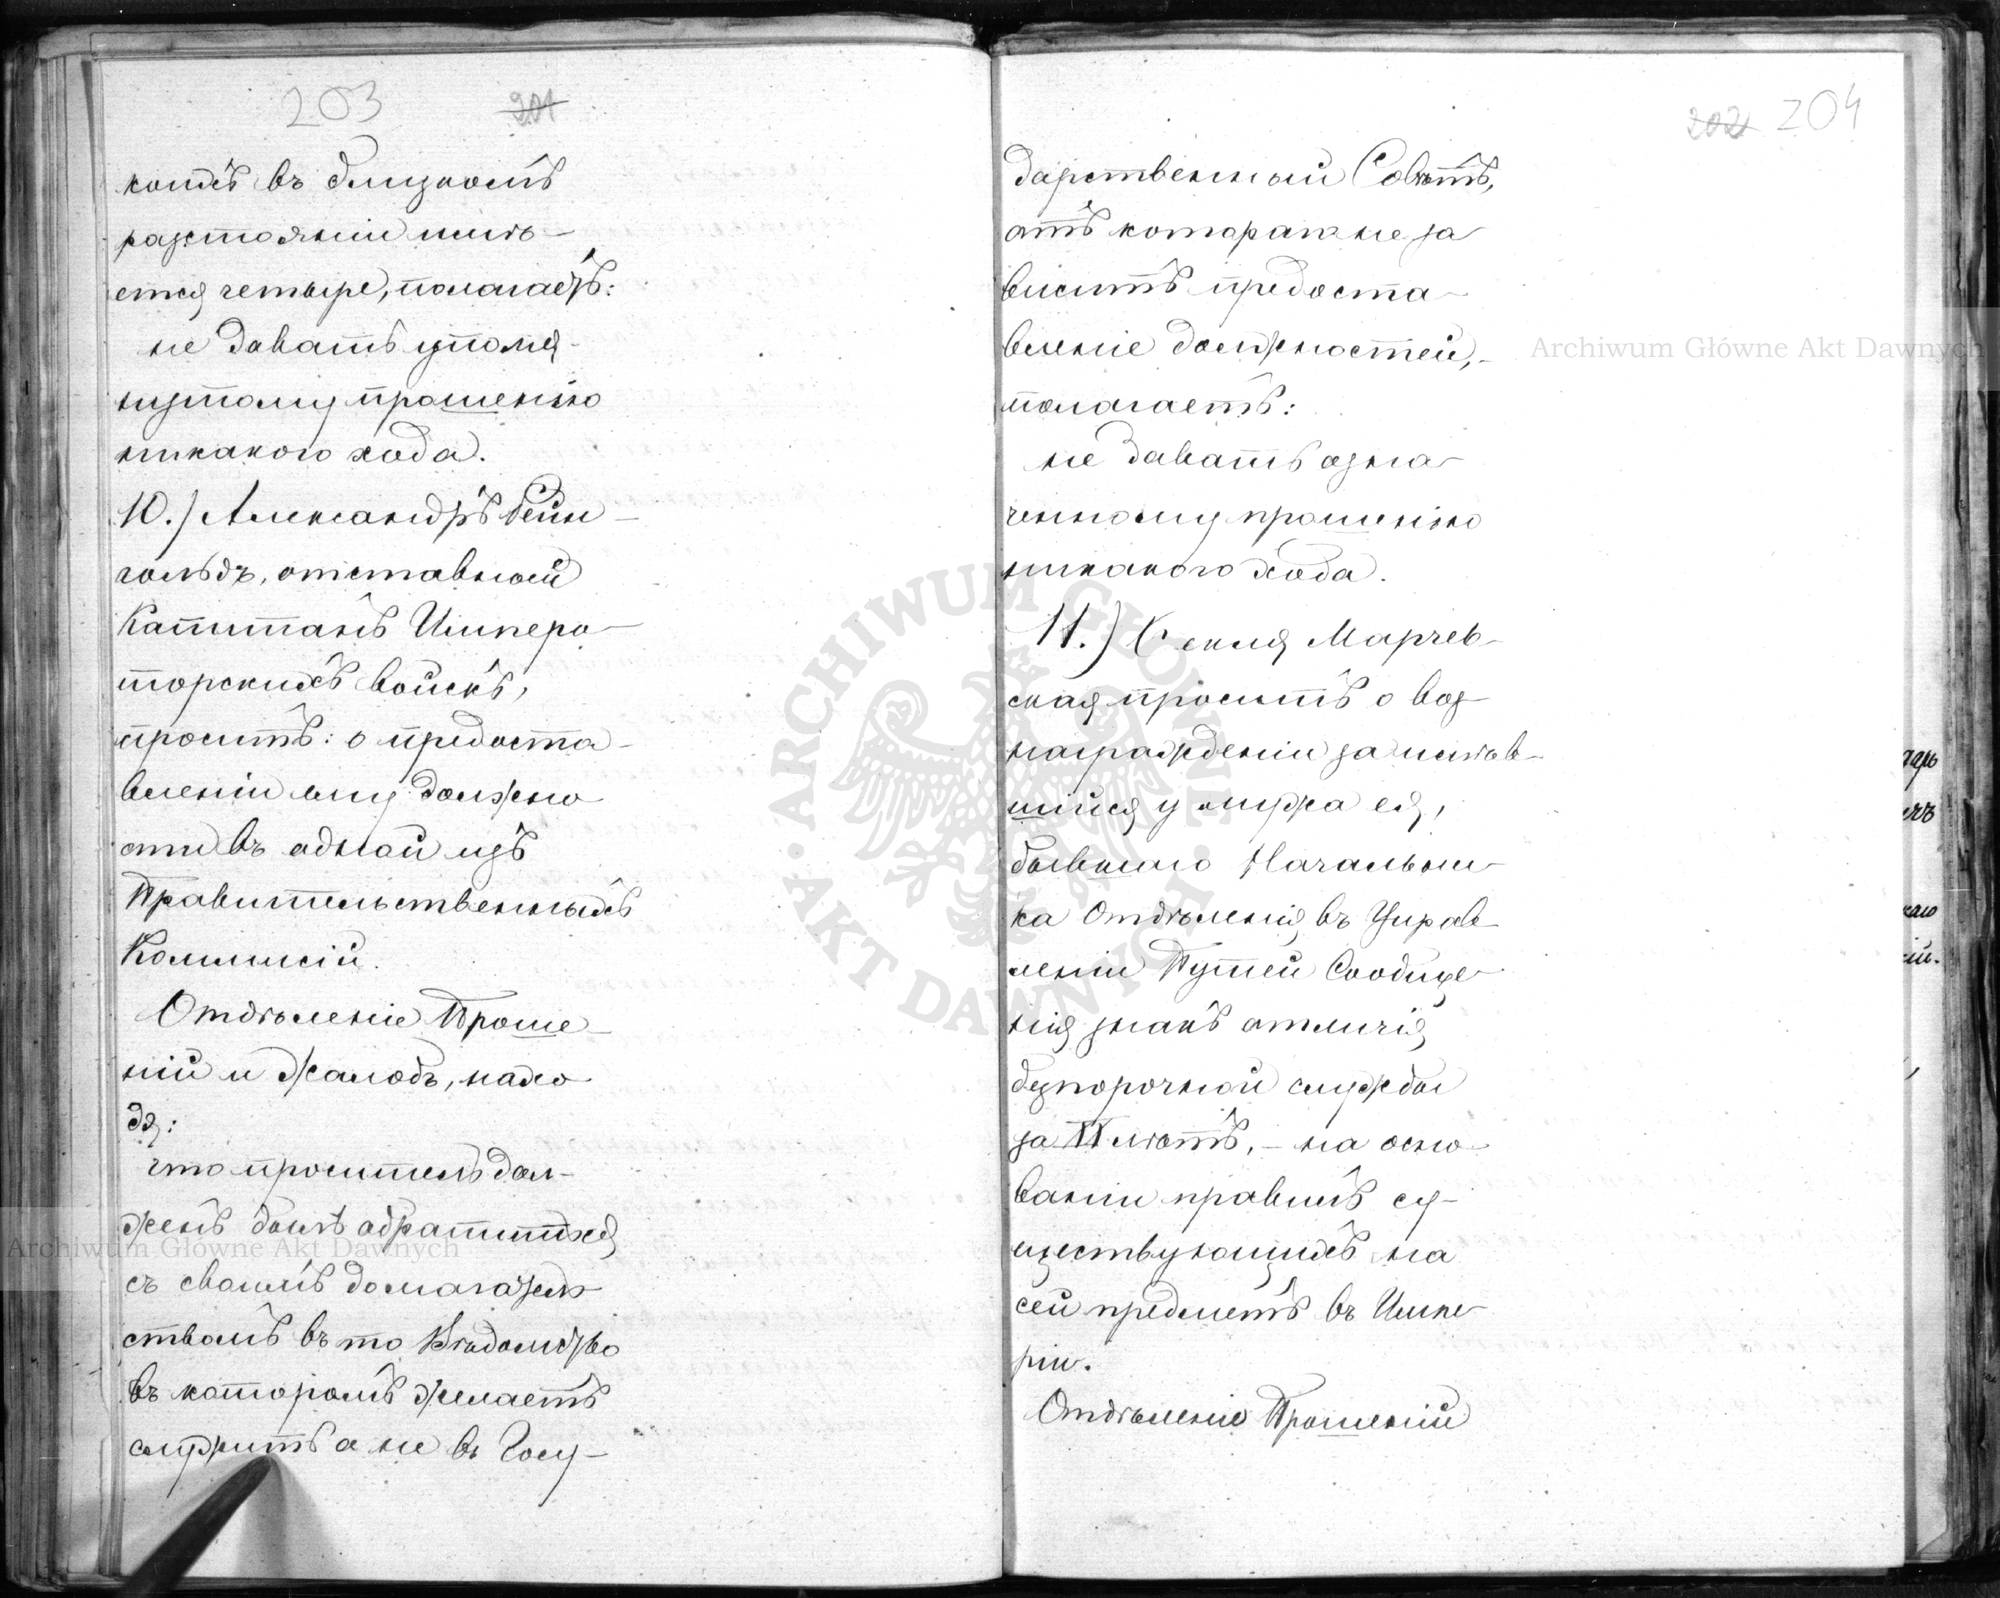 203 201
комъ въ близкомъ
разстоянiи имѣ-
ется четыре, полагаетъ:
не давать упомя-
нутому прошенiю
никакого хода.
10.) Александръ Бейн-
гольдъ, отставной
Капитанъ Импера-
торскихъ войскъ,
проситъ: о предоста-
вленiи ему должно
сти въ одной изъ
Правительственныхъ
Коммисiй.
Отдѣленiе Проше-
нiй и Жалобъ, нахо
дя:
что проситель дол-
женъ былъ обратится
съ своимъ домагатель
ствомъ въ то Вѣдомство
въ которомъ желаетъ
служить а не въ Госу-
202 204
дарственный Совѣтъ,
отъ котораго не за
виситъ предоста-
вленiе должностей,-
полагаетъ:
не давать озна-
ченному прошенiю
никакого хода.
11.) Фекля Марчев-
ская проситъ о воз-
награжденiи за имѣв-
шiйся у мужа ея,
бывшаго Начальни-
ка Отдѣленiя въ Управ-
ленiи Путей Сообще-
нiя знакъ отличiя
безпорочной службы
за лѣтъ, - на осно-
ванiи правилъ су-
ществующихъ на
сей предметъ въ Импе-
рiи.
Отдѣленiе Прошенiй
Archiwum Główne Akt Dawnych
Archiwum Główne Akt Dawnych
ARCHIWUM GŁÓWNE · AKT DAWNYCH ·